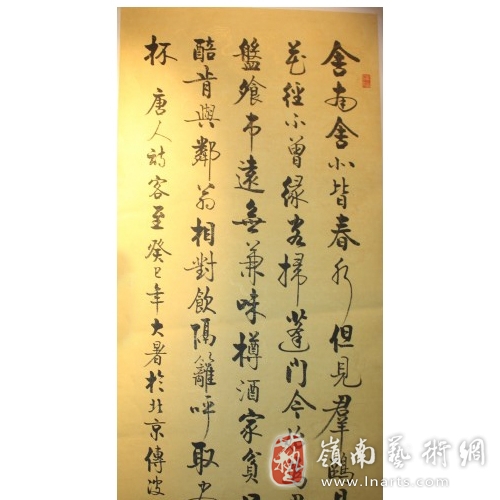 舍南舍北皆春水但見羣鷗
花徑不曾緣客掃蓬門今始為
盤飧市遠無兼味樽酒家貧只
醅肯與鄰翁相對飲隔籬呼取盡
杯 唐人詩客至癸巳年大暑於北京傳波
嶺南藝術網
www.lnarts.com